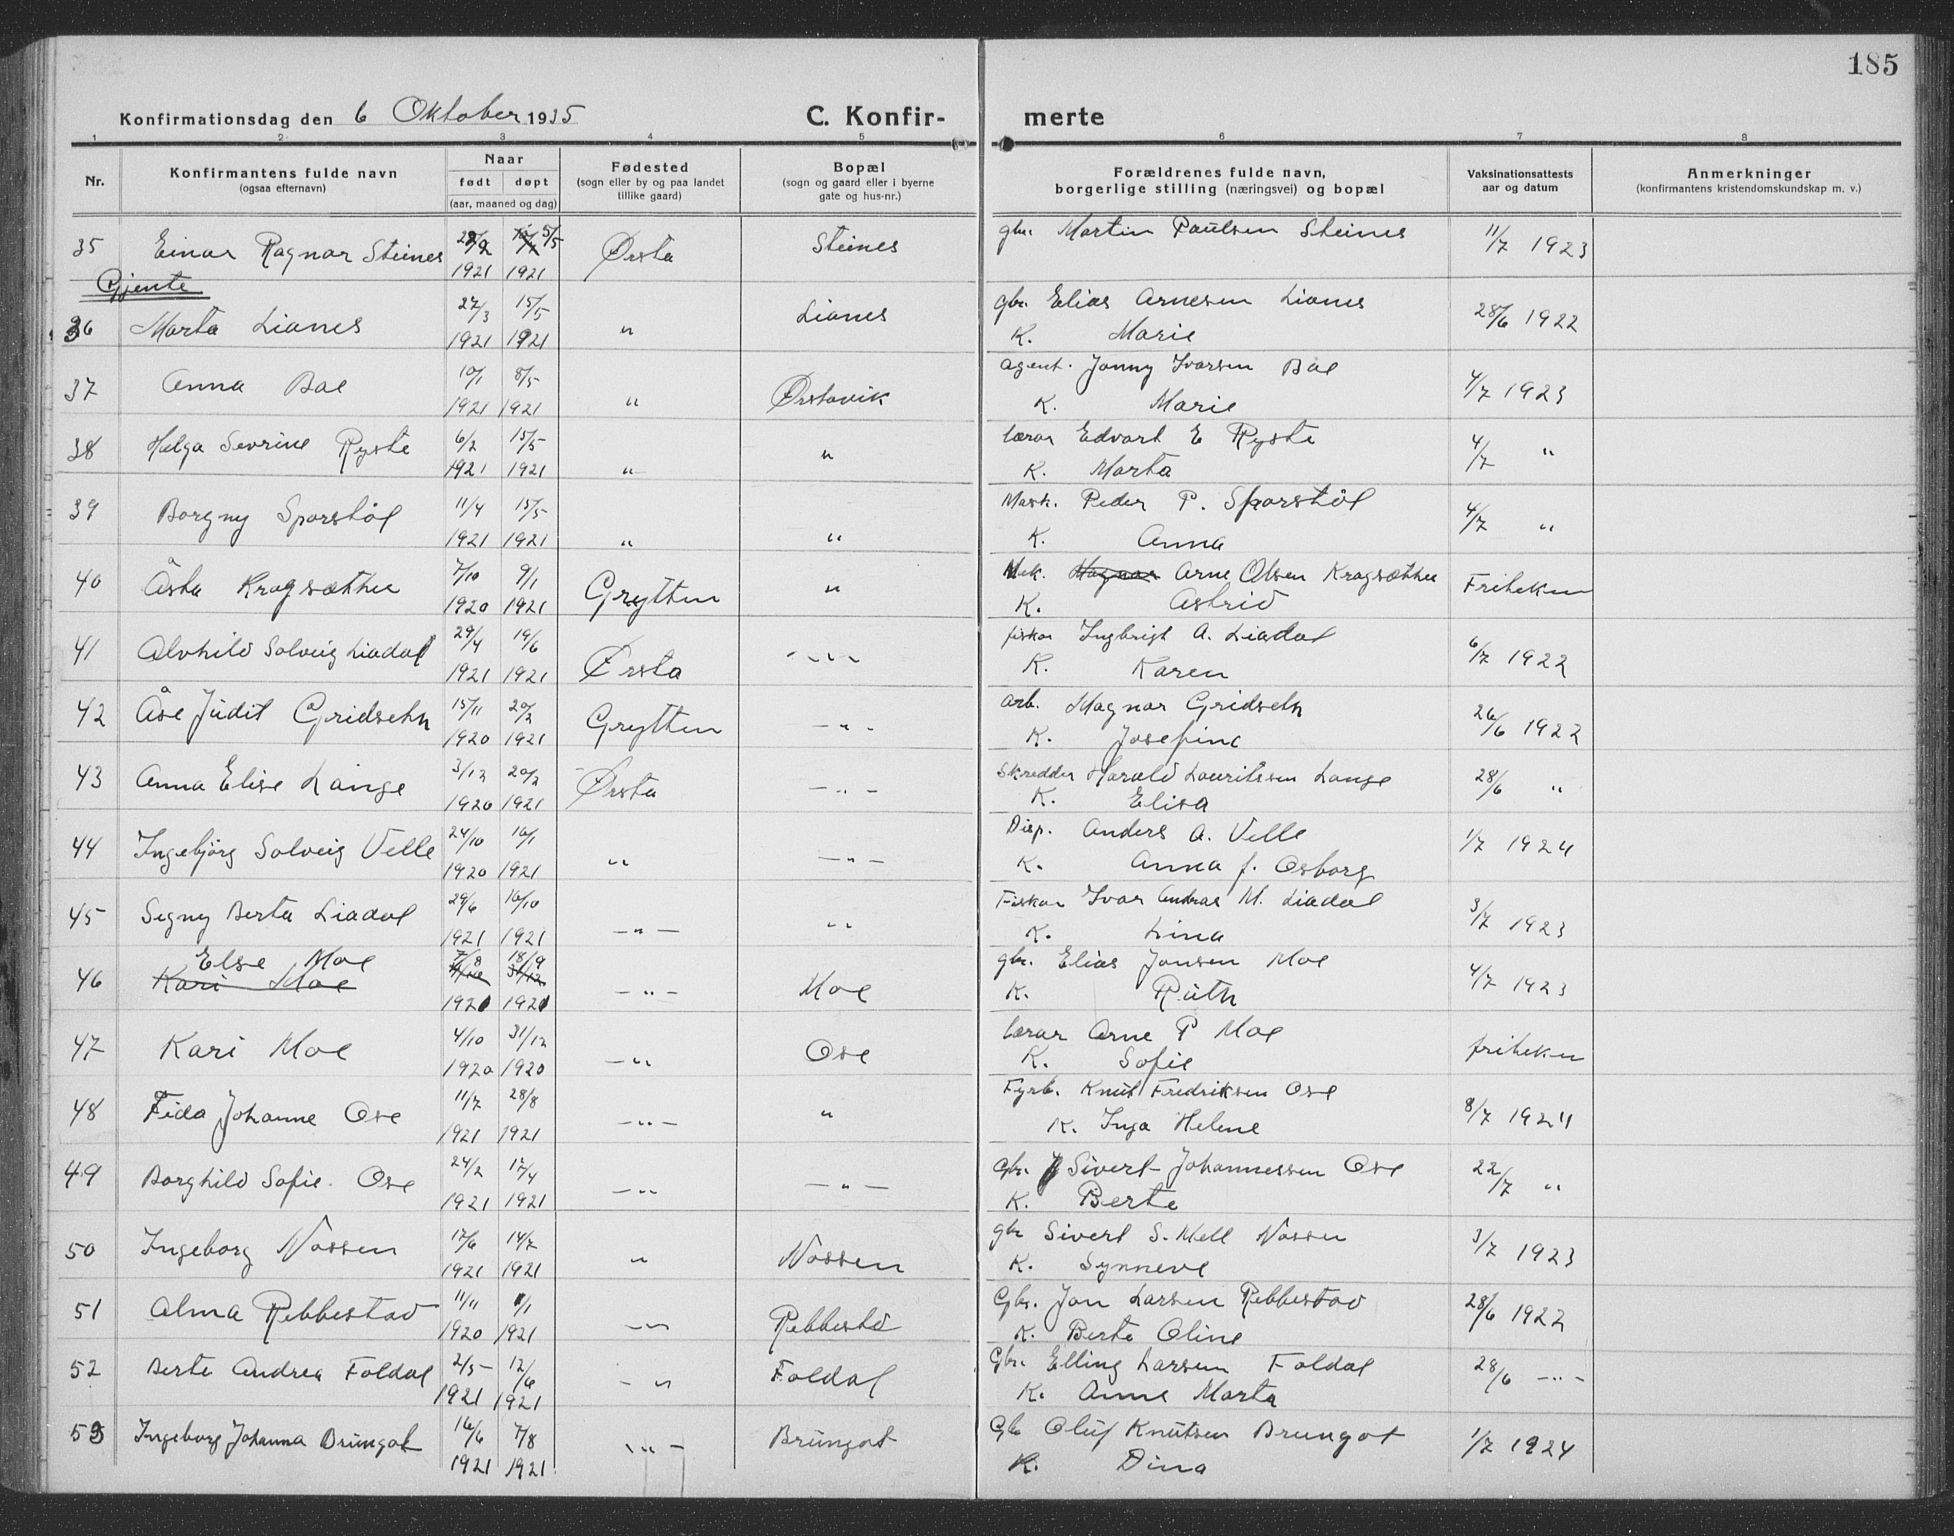 185
Konfirmationsdag den 6 Oktober 1935 C. Konfirmerte
1 2 3 4 5 6 7 8
Nr. Konfirmantens fulde navn (ogsaa efternavn) Naar født døpt (aar, maaned og dag) Fødested (sogn eller by og paa landet tillike gaard) Bopæl (sogn og gaard eller i byerne gate og hus-nr.) Forældrenes fulde navn, borgerlige stilling (næringsvei) og bopæl Vaksinationsattests aar og datum Anmerkninger (konfirmantens kristendomskundskap m. v.)
35 Einar Ragnar Steines 1921 5/5 1921 Ørsta Steines gbr. Martin Paulsen Steines 11/7 1923
Gjente
36 Marta Lianes 27/3 1921 15/5 1921 " Lianes gbr. Elias Arnesen Lianes K. Marie 28/6 1922
37 Anna Boe 10/1 1921 8/5 1921 " Ørstavik agent. Jonny Ivarsen Boe K. Marie 4/7 1923
38 Helga Sevrine Ryste 6/2 1921 15/5 1921 " " lærar Edvart E Ryste K. Marta 4/7 "
39 Borgny Sporstøl 11/4 1921 15/5 1921 " " Mask. Peder P. Sporstøl K. Anna 4/7 "
40 Åsta Kragsæther 7/10 1920 9/1 1921 Grytten " Mek. Magnar Arne Olsen Kragsæther K. Astrid Friteken
41 Alvhild Solveig Liadal 29/4 1921 19/6 1921 Ørsta - " - fiskar Ingbrigt A. Liadal K. Karen 6/7 1922
42 Åse Judit Gridseth 15/11 1920 20/2 1921 Grytten - " - arb. Magnar Gridseth K. Josefine 26/6 1922
43 Anna Elise Lange 3/12 1920 20/2 1921 Ørsta - " - Skredder Harald Lauritssen Lange K. Elisa 28/6 "
44 Ingebjørg Solveig Velle 24/10 1920 16/1 1921 " - " - Disp. Anders A. Velle K. Anna f. Osborg 1/7 1924
45 Segny Berta Liadal 29/6 1921 16/10 1921 - " - " Fiskar Ivar Andras M. Liadal K. Lina 3/7 1923
46 Else Moe Kari Moe 7/8 1921 18/9 1921 - " - Moe gbr. Elias Jonsen Moe K. Ruth 4/7 1923
47 Kari Moe 4/10 1920 31/12 1920 - " Ose lærar Arne P Moe K. Sofie friteken
48 Fida Johanne Ose 11/7 1921 28/8 1921 - " - " Fyrb. Knut Fredriksen Ose K. Inga Helene 8/7 1924
49 Borghild Sofie Ose 24/2 1921 17/4 1921 - " - " - Gbr. Sivert Johannessen Ose K. Berte 22/7 "
50 Ingeborg Nossen 17/6 1921 14/7 1921 " Nossen gbr Sivert S. Mell Nossen K. Synneve 3/7 1923
51 Alma Rebbestad 11/11 1920 1/1 1921 - " Rebbestd Gbr. Jon Larsen Rebbestad K. Berte Oline 28/6 1922
52 Berte Andrea Foldal 2/5 - 1921 12/6 1921 - " Foldal Gbr. Elling Larsen Foldal K. Anne Marta 28/6 - " -
53 Ingeborg Johanna Brungot 16/6 1921 7/8 1921 - " - Brungot Gbr Oluf Knutsen Brungot K. Dina 1/7 1924